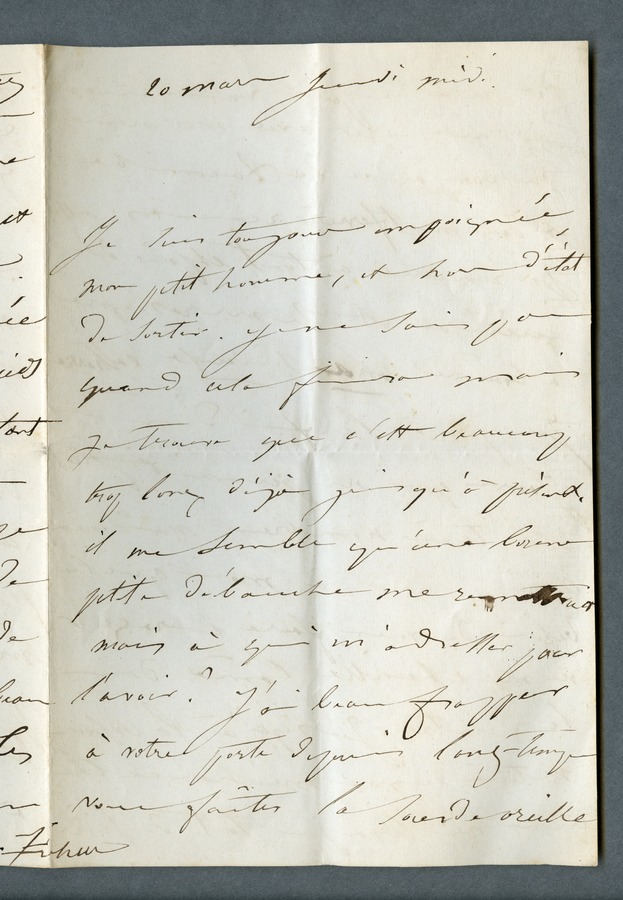 20 mars jeudi midi.
Je suis toujours empoignée
mon petit homme, et hors d'état
de sortir. Je ne sais pas
quand cela finira mais
je trouve que c'est beaucoup
trop long déjà jusqu'à présent.
il me semble qu'une bonne
petite débauche me remettrait
mais à qui m'adresser pour
l'avoir ? J'ai beau frapper
à votre porte depuis long-temps
vous faîtes la sourde oreille